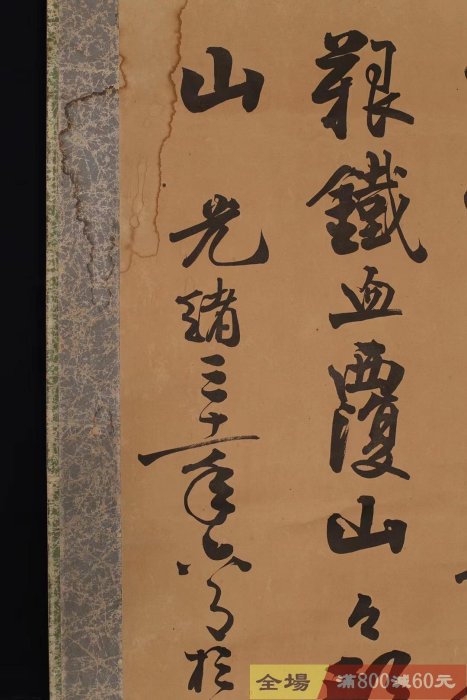 艱鐵血覆山々
山 光緒三十一年六月於
全場 滿800減60元